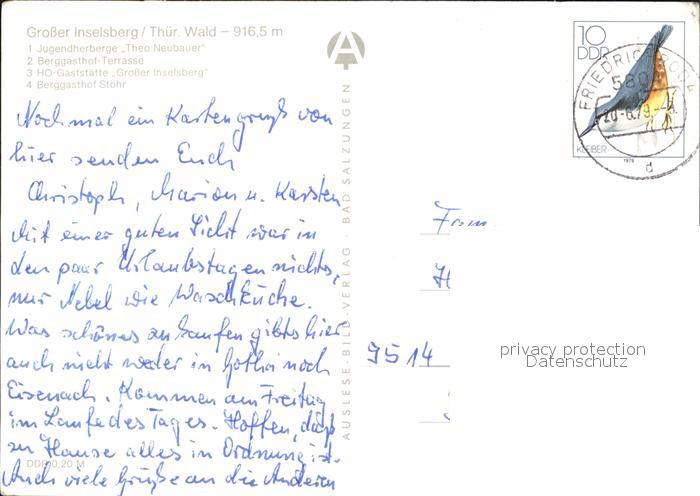 Großer Inselsberg / Thür. Wald – 916,5 m
1 Jugendherberge „Theo Neubauer"
2 Berggasthof-Terrasse
3 HO-Gaststätte „Großer Inselsberg"
4 Berggasthof Stöhr
Nochmal ein Kartengruß von
hier senden Euch
Christoph, Marion u. Karsten
Mit einer guten Sicht war in
den paar Urlaubstagen nichts,
nur Nebel wie Waschküche.
Was schönes zu kaufen gibts hier
auch nicht weder in Gotha noch
Eisenach. Kommen am Freitag
im Laufe des Tages. Hoffen, daß
zu Hause alles in Ordnung ist.
Auch viele Grüße an die Anderen
DDR 0,20 M
AUSLESE-BILD-VERLAG · BAD SALZUNGEN
A
10
DDR
KLEIBER
1979
FRIEDRICHRODA
580
20-6.79
d
Frau
H
9514
privacy protection
Datenschutz